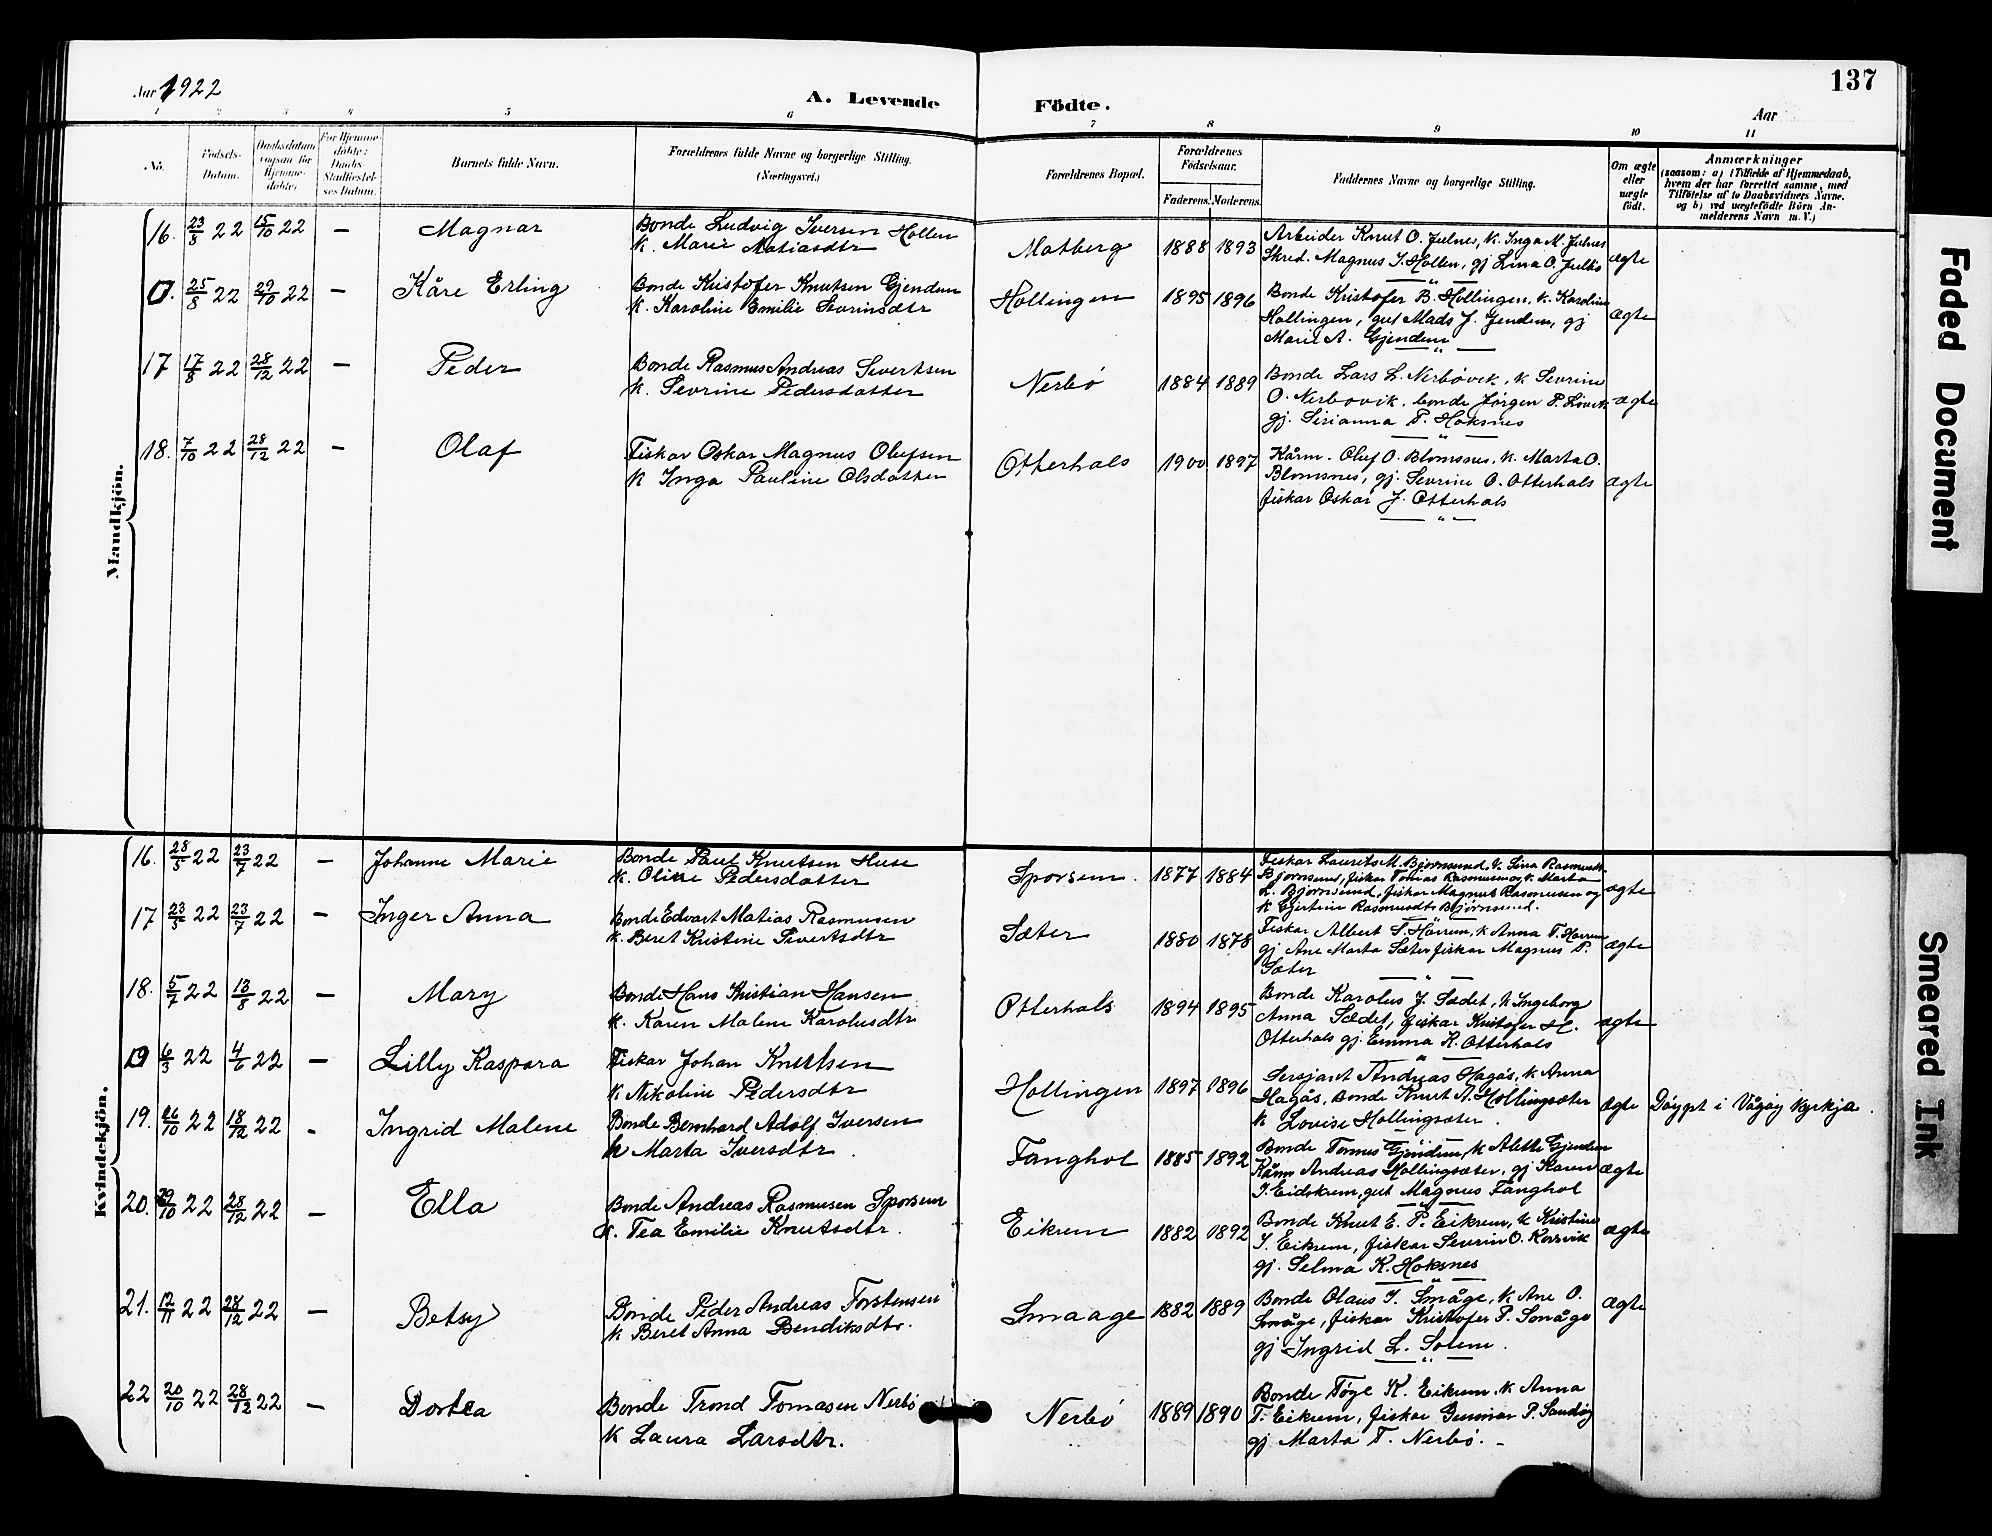 Aar 1922
A. Levende Födte.
Aar
137
1 2 3 4 5 6 7 8 9 10 11
No.
Födsels-
Datum.
Daabsdatum
(ogsaa for
Hjemme-
døbte)
For Hjemme-
døbte:
Daabs
Stadfæstel-
ses Datum.
Barnets fulde Navn.
Forældrenes fulde Navne og borgerlige Stilling.
(Næringsvei.)
Forældrenes Bopæl.
Forældrenes
Födselsaar.
Faderens. Moderens.
Faddernes Navne og borgerlige Stilling.
Om ægte
eller
uægte
födt.
Anmærkninger
(saasom: a) i Tilfælde af Hjemmedaab,
hvem der har forrettet samme, med
Tilföielse af to Daabsvidners Navne.
og b) ved uægtefödte Börn An-
melderens Navn m. V.)
Mandkjön.
16. 23/8 22 15/10 22 — Magnar
Bonde Ludvig Iversen Hollen
k. Marie Matiasdtr
Malberg 1888 1893
Arbeider Knut O. Julnes, k. Inga M. Julnes
Skred. Magnus I. Hollen, gj Lina O. Julbö
ægte
0. 25/8 22 29/10 22 — Kåre Erling
Bonde Kristofer Knutsen Gjendem
k. Karoline Emilie Severinsdtr
Hollingen 1895 1896
Bonde Kristofer B. Hollingen, k. Karoline
Hollingen, gut Mads J. Jendem, gj
Marie A. Gjendem
ægte
17 17/8 22 28/12 22 — Peder
Bonde Rasmus Andreas Sivertsen
k. Sevrine Pedersdatter
Nerbö 1884 1889
Bonde Lars L. Nerbövik, k Sevrine
O. Nerbovik. bonde Jörgen P. Lövik
gj. Sirianna P. Hoksnes
ægte
18. 7/10 22 28/12 22 — Olaf
Fiskar Oskar Magnus Olufsen
k Inga Pauline Olsdatter
Otterhals 1900 1897
Kårm. Oluf O. Blomsnes, k. Marta O.
Blomsnes, gj. Sevrine O. Otterhals
fiskar Oskar J. Otterhals
ægte
Kvindekjön.
16. 28/5 22 23/7 22 — Johanne Marie
Bonde Paul Knutsen Huse
k. Oline Pedersdatter
Sporsem. 1877 1884
Fiskar Laurits M. Björnsund, k Lina Rasmusdtr
Björnsund, fiskar Tomas Rasmusen og k. Marta
L. Björnsund, fiskar Magnus Rasmussen og
k Gjertine Rasmusdtr Björnsund.
ægte
17 23/5 22 23/7 22 — Inger Anna
Bonde Edvart Matias Rasmusen
k. Beret Kristine Sivertsdtr
Sæter 1880 1878
Fiskar Albert S. Harrem, k Anna T. Harrem
gj Ane Marta Sæter fiskar Magnus P.
Sæter
ægte
18. 5/7 22 13/8 22 — Mary
Bonde Hans Kristian Hansen
k. Karen Malene Karolusdtr
Otterhals 1894 1895
Bonde Karolus J. Sædet, k Ingeborg
Anna Sædet, fiskar Kristofer H.
Otterhals gj. Emma K. Otterhals
ægte
0 6/3 22 4/6 22 — Lilly Kaspara
Fiskar Johan Knutsen
k. Nikoline Pedersdtr
Hollingen 1897 1896
Sersjant Andreas Hagås, k Anna
Hagås, bonde Knut A. Hollingsæter
k Lovise Hollingsæter.
ægte Döypt i Vågöy Kyrkja.
19. 26/10 22 18/12 22 - Ingrid Malene
Bonde Bernhard Adolf Iversen
k Marta Iversdtr.
Fanghol 1885 1892
Bonde Tomas Gjöndem, k Alette Gjendem
Kårm Andreas Hollingsæter, gj Karen
I. Eidskrem, gut Magnus Fanghol
ægte
20. 29/10 22 28/12 22 — Ella
Bonde Andreas Rasmusen Sporsem
k. Tea Emilie Knutsdtr.
Eikrem 1882 1892
Bonde Knut E. P. Eikrem, k Kristine
I. Eikrem, fiskar Severin O. Korsvik
gj. Selma K. Hoksnes
ægte
21. 12/11 22 28/12 22 — Betsy
Bonde Peder Andreas Torstensen
k Beret Anna Bendiksdtr.
Smaage 1882 1889
Bonde Olaus I. Småge, k Ane O.
Småge, fiskar Kristofer P. Småge
gj Ingrid L. Solem.
ægte
22 20/10 22 28/12 22 — Dortea
Bonde Trond Tomasen Nerbö
k Laura Larsdtr.
Nerbö 1889 1890
Bonde Töge K. Eikrem, k Anna
T. Eikrem, fiskar Gunnar P. Sandöy
gj Marta T. Nerbö.
Faded Document
Smeared Ink